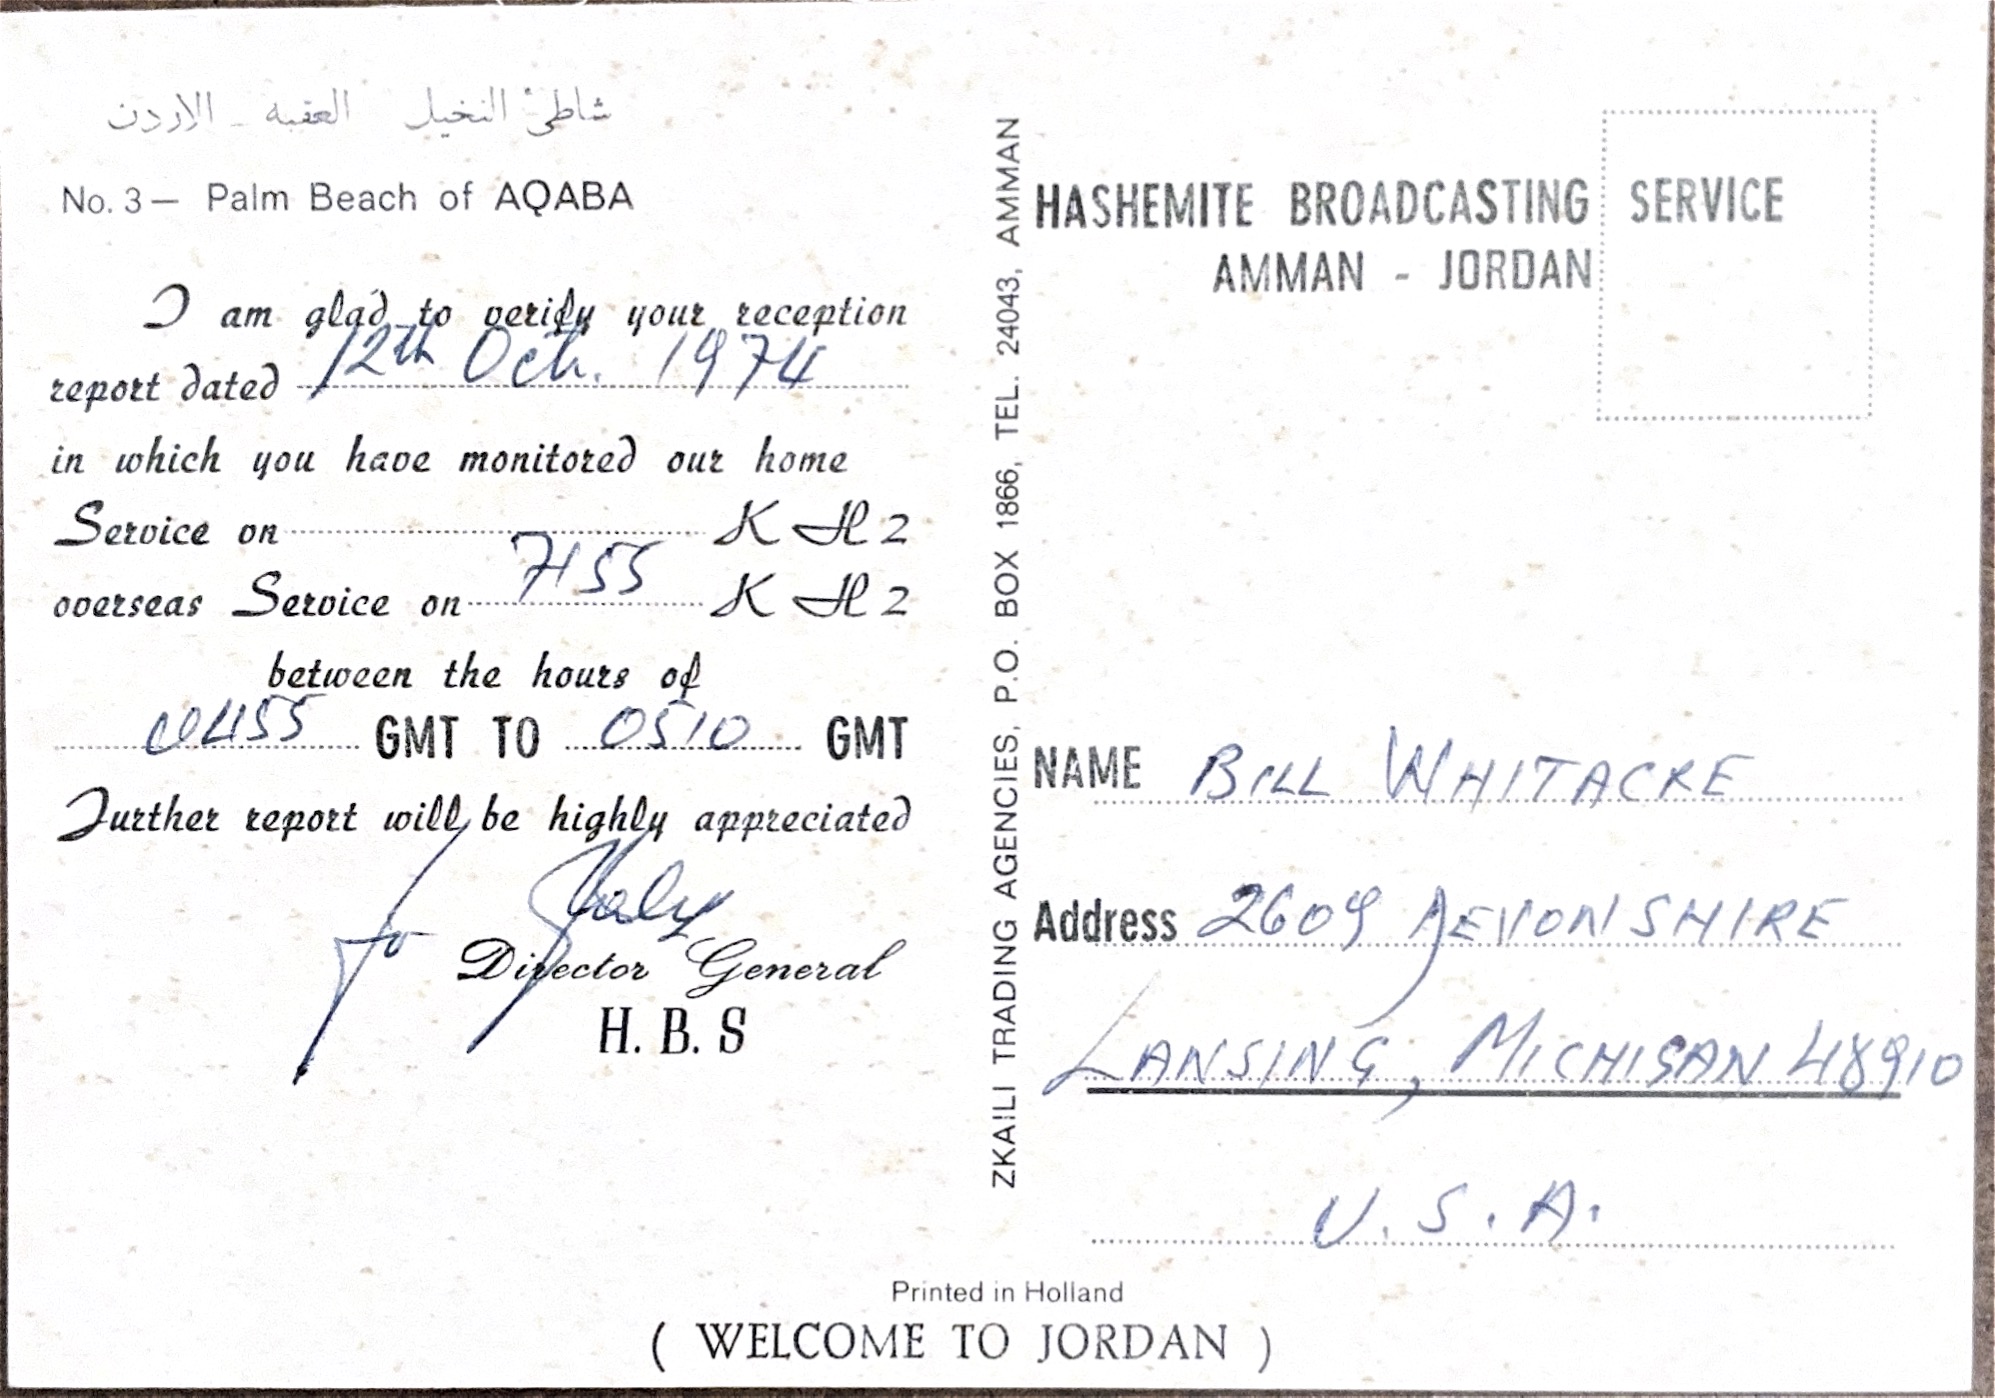 شاطئ النخيل العقبه - الاردن
No. 3 — Palm Beach of AQABA
I am glad to verify your reception
report dated 12th Oct. 1974
in which you have monitored our home
Service on KHz
overseas Service on 7155 KHz
between the hours of
0455 GMT TO 0510 GMT
Further report will be highly appreciated
for
Director General
H. B. S
ZKAILI TRADING AGENCIES, P.O. BOX 1866, TEL. 24043, AMMAN
HASHEMITE BROADCASTING SERVICE
AMMAN - JORDAN
NAME BILL WHITACRE
Address 2609 DEVONSHIRE
LANSING, MICHIGAN 48910
U.S.A.
Printed in Holland
( WELCOME TO JORDAN )